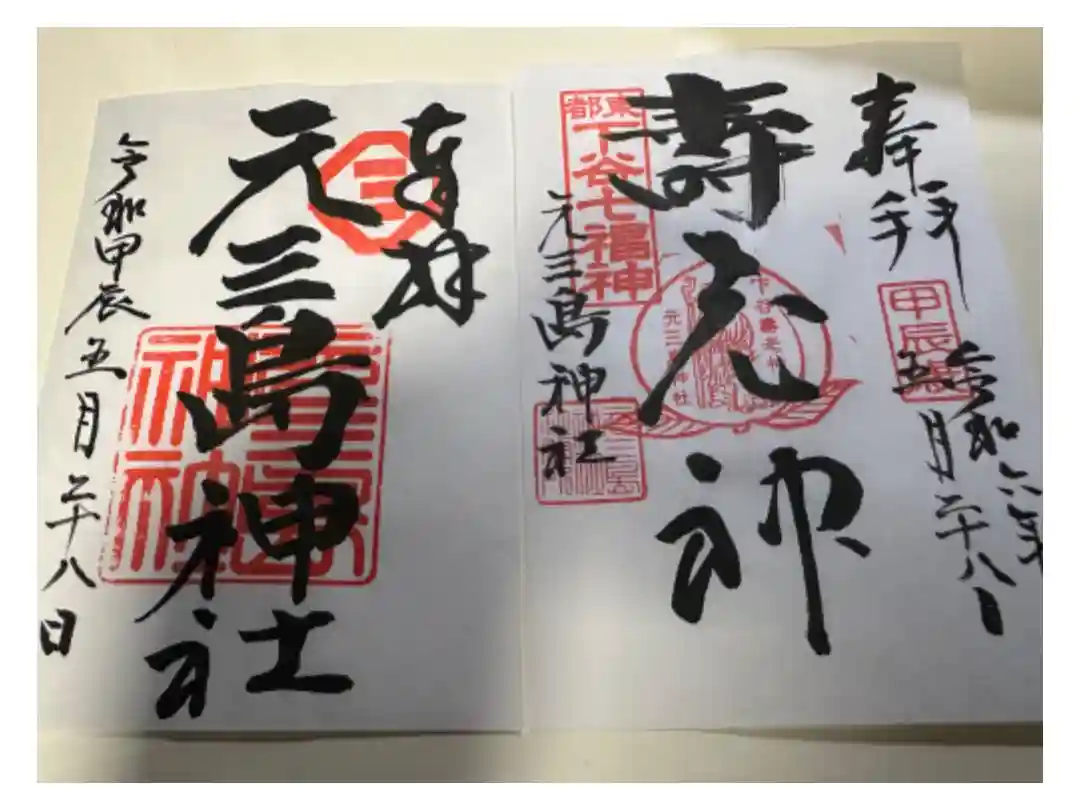 奉拝
甲辰歳
令和六年
五月二十八日
壽老神
下谷壽老神
元三島神社
東都
下谷七福神
元三島神社
奉拝
三
元三島神社
令和甲辰五月二十八日